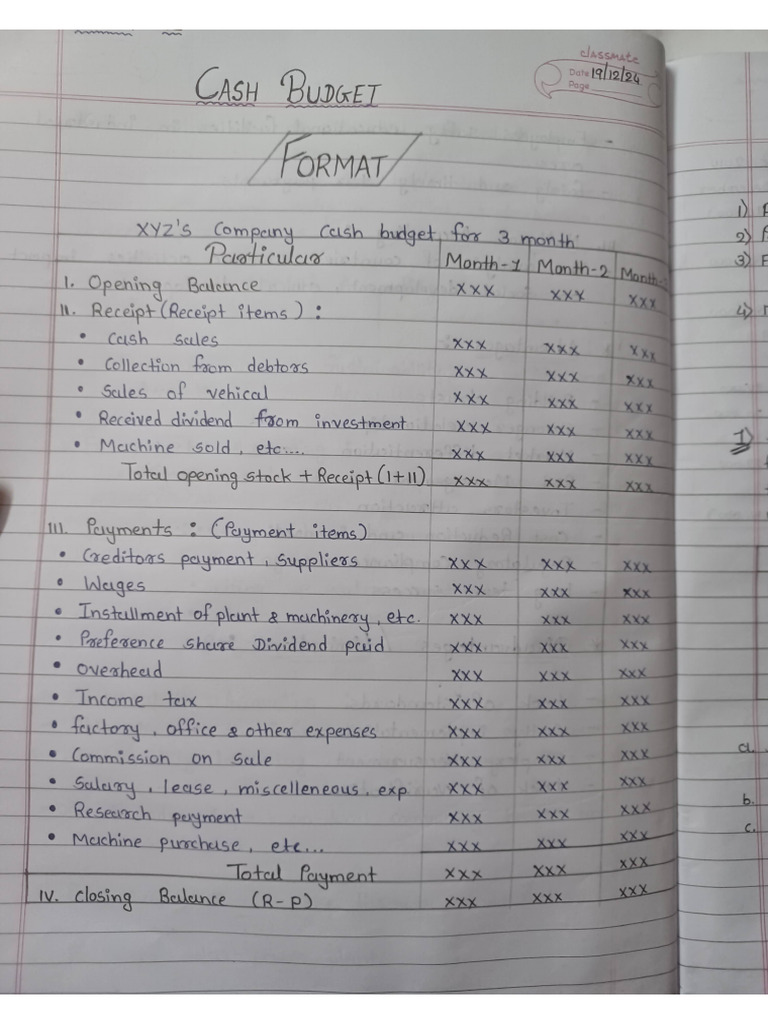 classmate
Date 19/12/24
Page
CASH BUDGET
FORMAT
XYZ's Company Cash budget for 3 month
Particular Month-1 Month-2 Month-
I. Opening Balance xxx xxx xxx
II. Receipt (Receipt items) :
• Cash sales xxx xxx xxx
• Collection from debtors xxx xxx xxx
• Sales of vehical xxx xxx xxx
• Received dividend from investment xxx xxx xxx
• Machine sold, etc.... xxx xxx xxx
Total opening stock + Receipt (I+II) xxx xxx xxx
III. Payments : (Payment items)
• Creditors payment, suppliers xxx xxx xxx
• Wages xxx xxx xxx
• Installment of plant & machinery, etc. xxx xxx xxx
• Preference share Dividend paid xxx xxx xxx
• overhead xxx xxx xxx
• Income tax xxx xxx xxx
• factory, office & other expenses xxx xxx xxx
• Commission on sale xxx xxx xxx
• Salary, lease, miscelleneous, exp xxx xxx xxx
• Research payment xxx xxx xxx
• Machine purchase, etc... xxx xxx xxx
Total Payment xxx xxx xxx
IV. Closing Balance (R-P) xxx xxx xxx
1)
2)
3)
4)
I)
a.
b.
c.